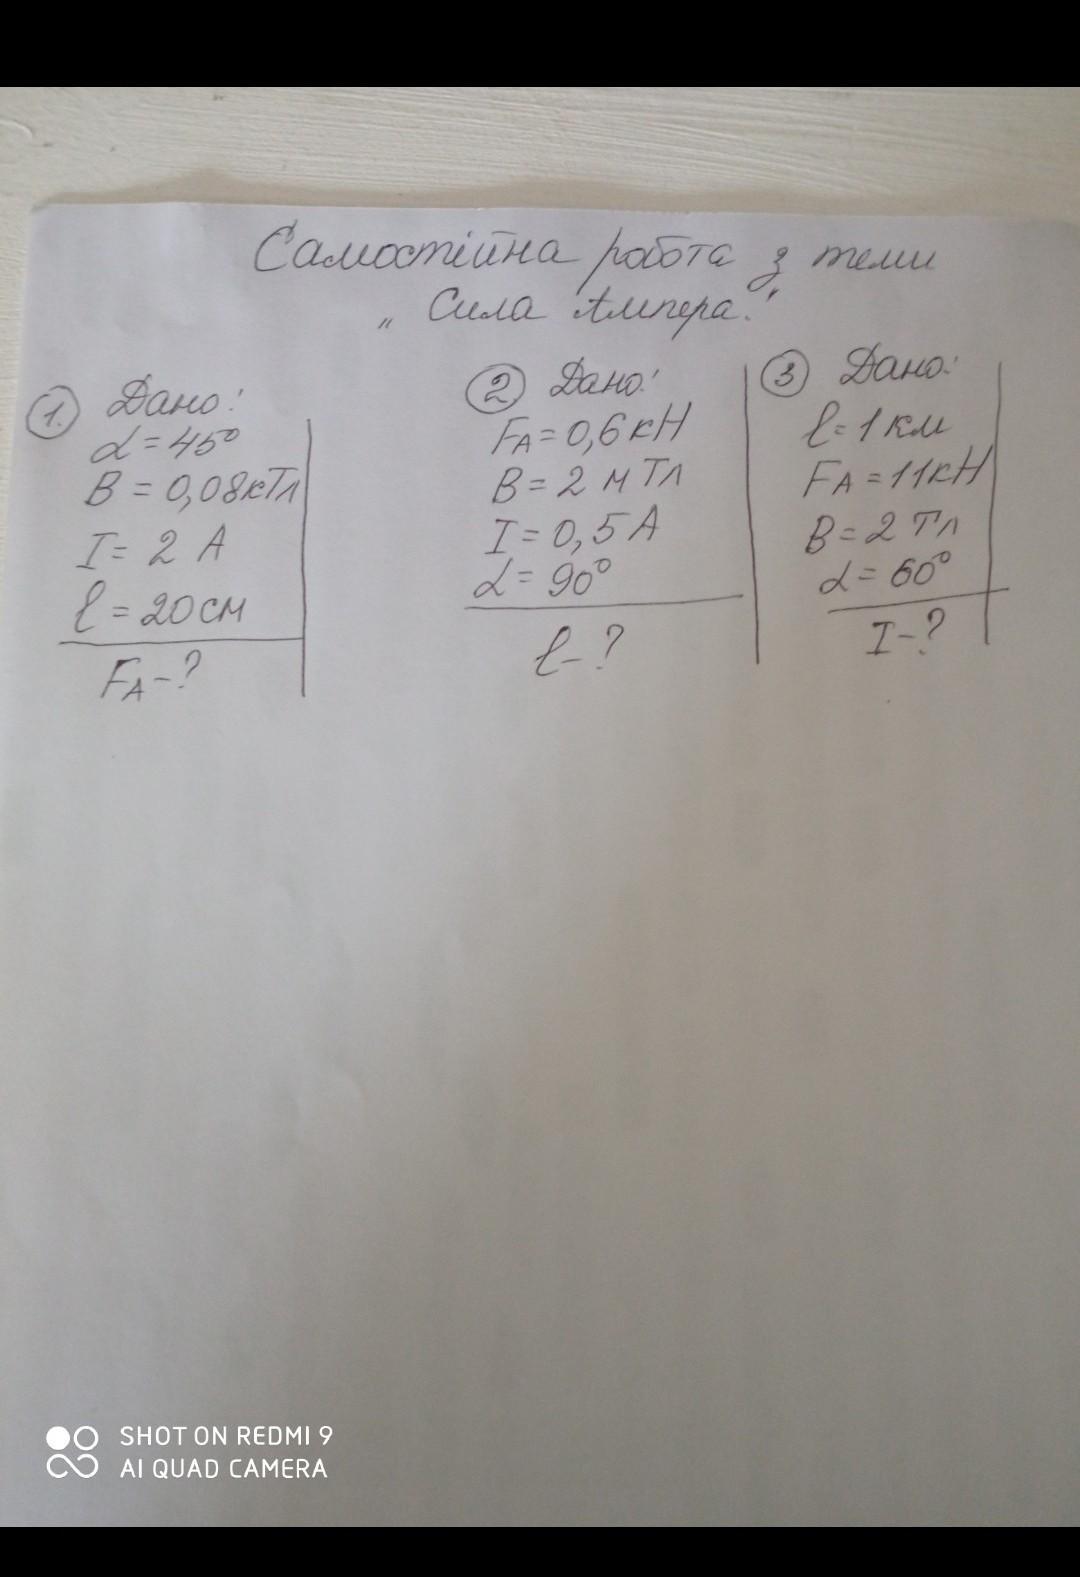 Самостійна робота з теми
„ Сила Ампера."
1. Дано:
α = 45°
B = 0,08кТл
I = 2 А
ℓ = 20см
FA - ?
2 Дано:
FA = 0,6кН
B = 2 мТл
I = 0,5 А
α = 90°
ℓ - ?
3 Дано:
ℓ = 1км
FA = 11кН
B = 2 Тл
α = 60°
I - ?
SHOT ON REDMI 9
AI QUAD CAMERA